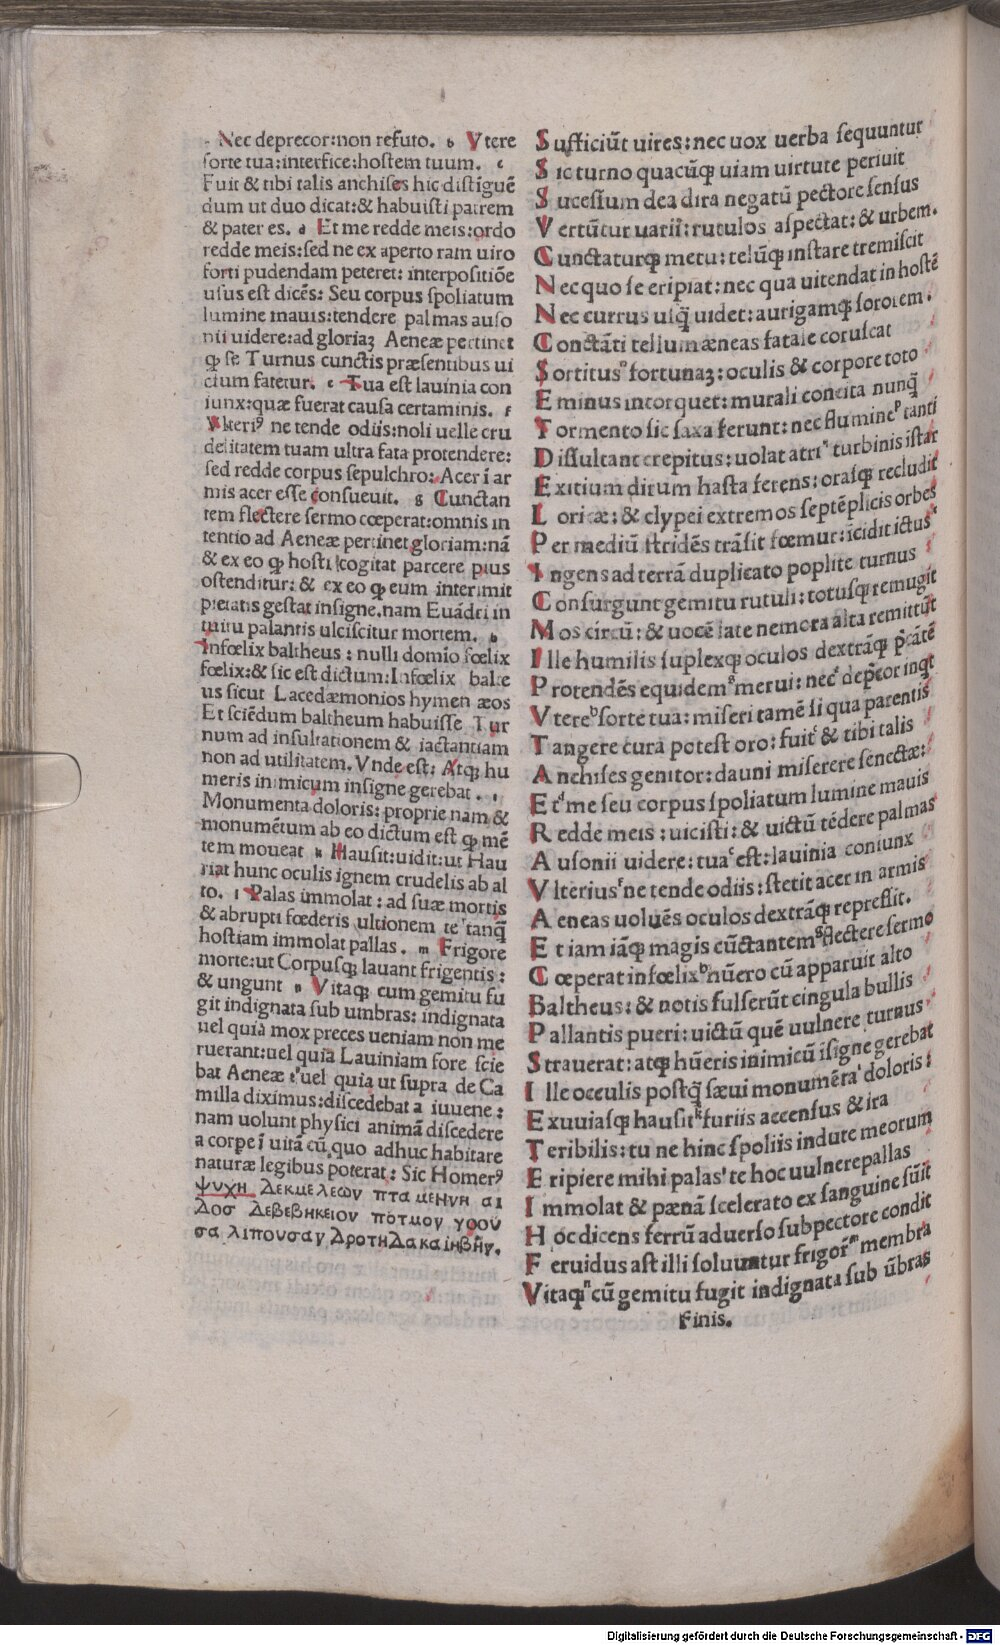 Nec deprecor:non refuto. b Vtere
ſorte tua:interfice:hoſtem tuum. c
Fuit & tibi talis anchiſes hic diſtīguē
dum ut duo dicat:& habuiſti patrem
& pater es. d Et me redde meis:ordo
redde meis:ſed ne ex aperto ram uiro
forti pudendam peteret: interpoſitiōe
uſus eſt dicēs: Seu corpus ſpoliatum
lumine mauis:tendere palmas auſo
nii uidere:ad gloriaꝫ Aeneæ pertinet
ꝙ ſe Turnus cunctis præſentibus ui
cium fatetur. e Tua eſt lauinia con
iunx:quæ fuerat cauſa certaminis. f
Vlteriꝰ ne tende odiis:noli uelle cru
delitatem tuam ultra fata protendere:
ſed redde corpus ſepulchro: Acer ī ar
mis acer eſſe conſueuit. g Cunctan
tem flectere ſermo cœperat:omnis in
tentio ad Aeneæ pertinet gloriam:nā
& ex eo ꝙ hoſti cogitat parcere pius
oſtenditur: & ex eo ꝙ eum interimit
pietatis geſtat inſigne.nam Euādri in
tuitu palantis ulciſcitur mortem. h
Infœlix baltheus : nulli domīo fœlix
fœlix:& ſic eſt dictum:Infœlix balte
us ſicut Lacedæmonios hymen æos
Et ſciēdum baltheum habuiſſe Tur
num ad inſultationem & iactantiam
non ad utilitatem. Vnde eſt: Atqꝫ hu
meris inimicum inſigne gerebat. i
Monumenta doloris: proprie nam &
monumētum ab eo dictum eſt ꝙ mē
tem moueat k Hauſit:uidit:ut Hau
riat hunc oculis ignem crudelis ab al
to. l Palas immolat : ad ſuæ mortis
& abrupti fœderis ultionem te tanꝗ̄
hoſtiam immolat pallas. m Frigore
morte:ut Corpuſqꝫ lauant frigentis :
& ungunt n Vitaqꝫ cum gemitu fu
git indignata ſub umbras: indignata
uel quia mox preces ueniam non me
ruerant:uel quia Lauiniam fore ſcie
bat Aeneæ :uel quia ut ſupra de Ca
milla diximus:diſcedebat a iuuene :
nam uolunt phyſici animā diſcedere
a corpe ī uitā cū quo adhuc habitare
naturæ legibus poterat: Sic Homerꝰ
ψυχη Δεκμελεων πτα μενυη αι
Δοσ Δεβεβηκειον ποτμον γοου
σα λιπουσαγ Δροτηδα και ηβην.
Sufficiūt uires: nec uox uerba ſequuntur
Sic turno quacūqꝫ uiam uirtute periuit
Suceſſum dea dira negatū pectore ſenſus
Vertūtur uarii: rutulos aſpectat: & urbem.
Cunctaturqꝫ metu: telūqꝫ inſtare tremiſcit
Nec quo ſe eripiat: nec qua uitendat in hoſtē
Nec currus uſꝗ̄ uidet: aurigamqꝫ ſororem.
Conctāti tellum æneas fatale coruſcat
Sortitus fortunaꝫ: oculis & corpore toto
Eminus intorquet: murali concita nunꝗ̄
Tormento ſic ſaxa ferunt: nec flumine tanti
Diſſultant crepitus: uolat atri turbinis iſtar
Exitium dirum haſta ferens: oraſqꝫ recludit
Loricæ: & clypei extremos ſeptēplicis orbes
Per mediū ſtridēs trāſit fœmur: īcidit ictus
Ingens ad terrā duplicato poplite turnus
Conſurgunt gemitu rutuli: totuſqꝫ remugit
Mos circū: & uocē late nemora alta remittūt
Ille humilis ſuplexqꝫ oculos dextrāqꝫ p̄cātē
Protendēs equidem merui: nec dep̄cor inqt
Vtere ſorte tua: miſeri tamē ſi qua parentis
Tangere cura poteſt oro: fuit & tibi talis
Anchiſes genitor: dauni miſerere ſenectæ:
Et me ſeu corpus ſpoliatum lumine mauis
Redde meis : uiciſti: & uictū tēdere palmas
Auſonii uidere: tua eſt: lauinia coniunx
Vlterius ne tende odiis: ſtetit acer in armis
Aeneas uoluēs oculos dextrāqꝫ repreſſit.
Et iam iāqꝫ magis cūctantem flectere ſermo
Cœperat infœlix hūero cū apparuit alto
Baltheus: & notis fulſerūt cingula bullis
Pallantis pueri: uictū quē uulnere turnus
Strauerat: atqꝫ hūeris inimicū iſigne gerebat
Ille occulis poſtꝗ̄ ſæui monumēta doloris:
Exuuiaſqꝫ hauſit furiis accenſus & ira
Teribilis: tu ne hinc ſpoliis indute meorum
Eripiere mihi palas te hoc uulnere pallas
Immolat & pænā ſcelerato ex ſanguine ſūit
Hoc dicens ferrū aduerſo ſub pectore condit
Feruidus aſt illi ſoluuntur frigore membra
Vitaqꝫ cū gemitu fugit indignata ſub ūbras
Finis.
Digitalisierung gefördert durch die Deutsche Forschungsgemeinschaft - DFG